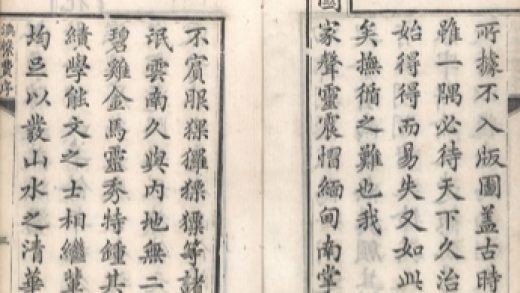 所據不入版圖蓋古時
雖一隅必待天下久治
始得得而易失又如此
矣撫循之難也我
國家聲靈震慴緬甸南掌
不賓服猓玀猓獛等諸
氓雲南久與内地無二
碧雞金馬靈秀特鍾其
績學能文之士相繼輩
均足以叢山水之清華
滇樣費序